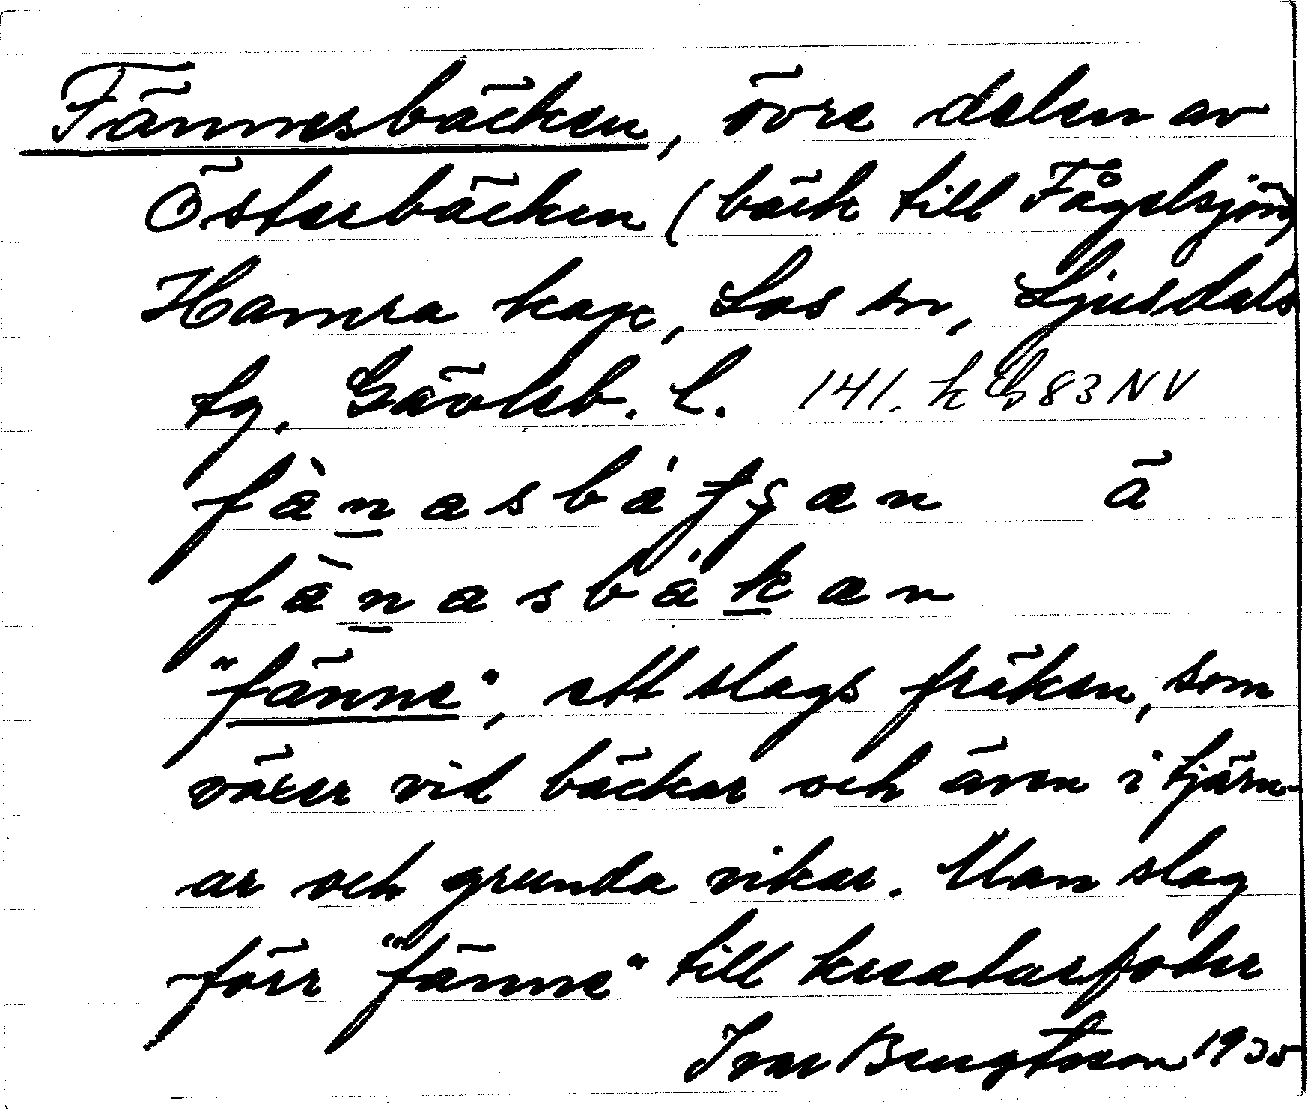 Fännesbäcken, övre delen av
Österbäcken (bäck till Fågelsjön)
Hamra kap, Los sn, Ljusdals
tg. Gävleb. l. 141. k 83 NV
ä
"fänne", ett slags fräken, som
växer vid bäckar och även i tjärn-
ar och grunda vikar. Man slag
förr "fänne" till kreatursfoder
Ivar Bengtsson 1935